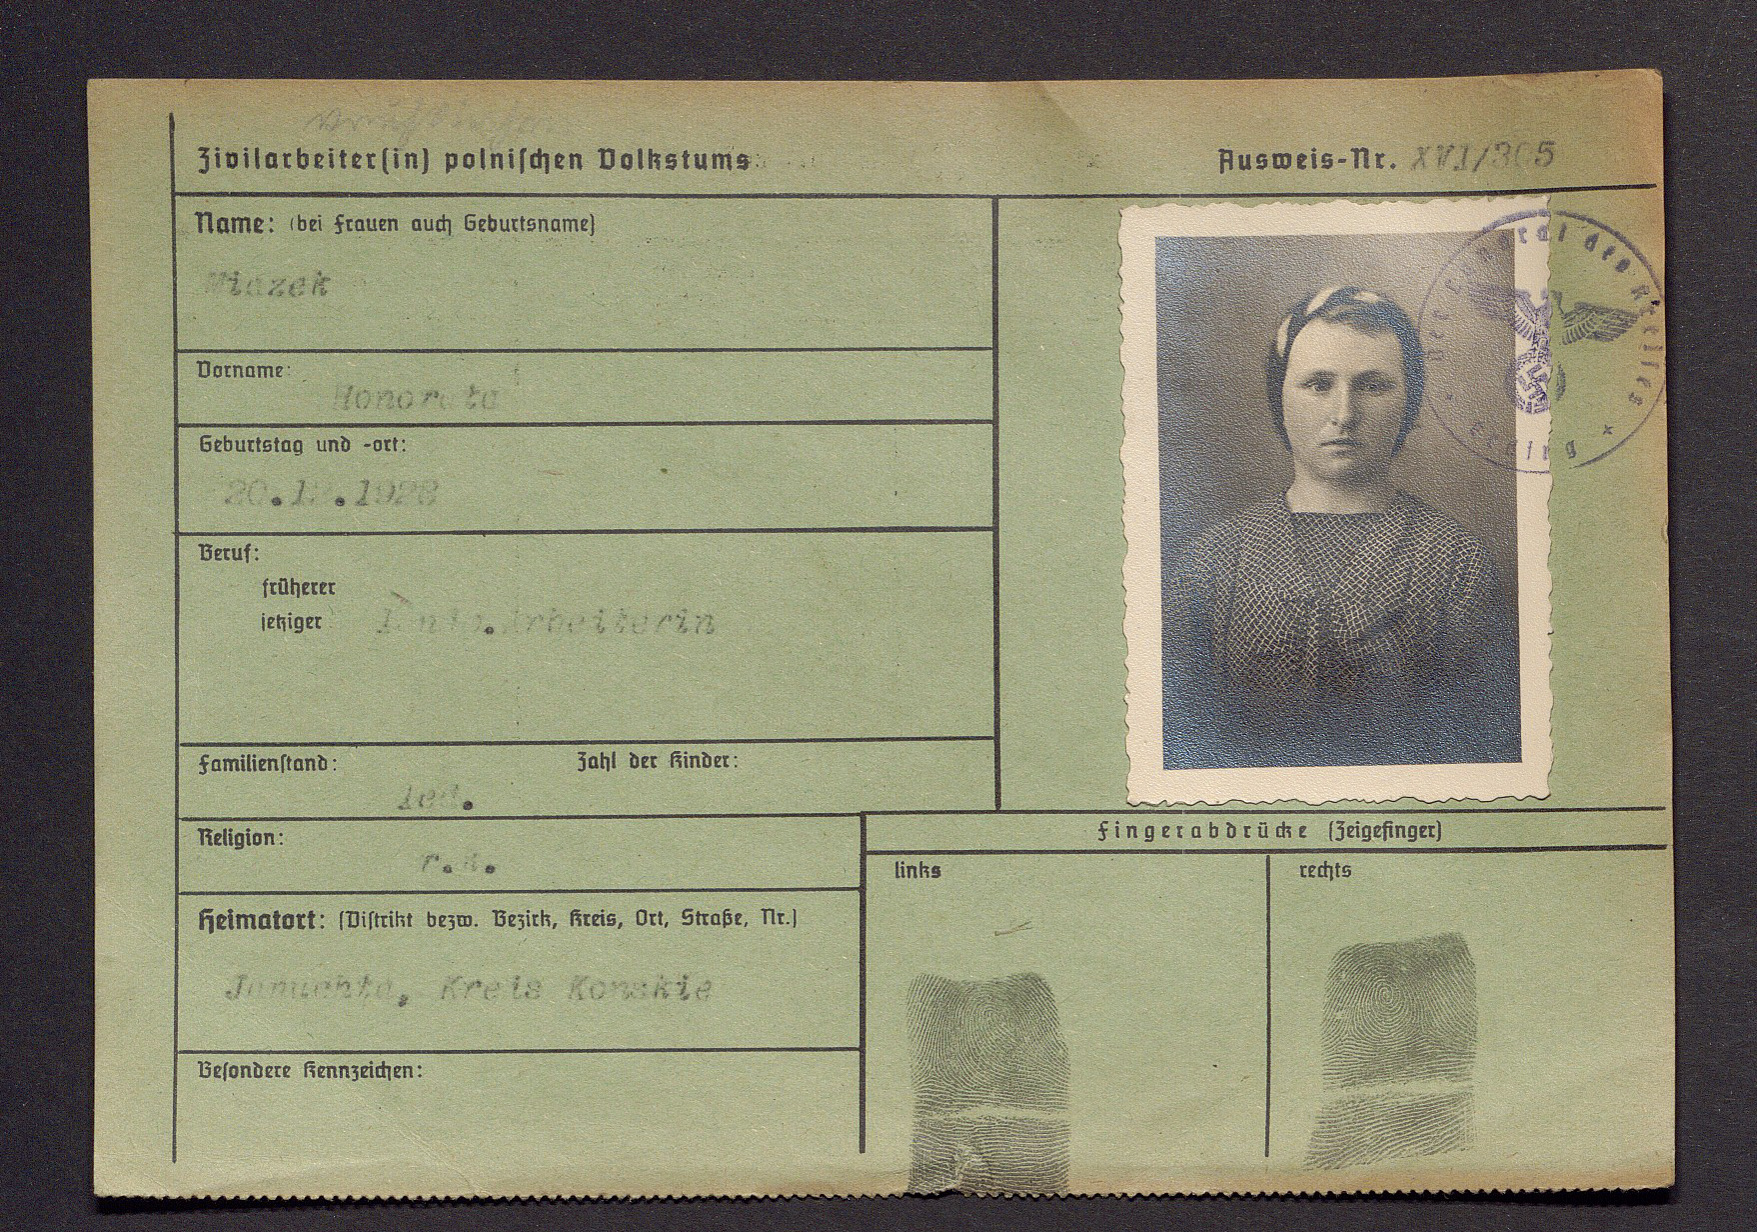 Zivilarbeiter(in) polnischen Volkstums
Ausweis-Nr. XVI/305
Name: (bei Frauen auch Geburtsname)
Miazek
Vorname:
Honorata
Geburtstag und -ort:
20.12.1926
Beruf:
früherer
jetziger Landw.Arbeiterin
Familienstand: Zahl der Kinder:
led.
Religion:
r.k.
Heimatort: (Distrikt bezw. Bezirk, Kreis, Ort, Straße, Nr.)
Kreis Konskie
Besondere Kennzeichen:
Fingerabdrücke (Zeigefinger)
links
rechts
Der Landrat des Kreises
Erding